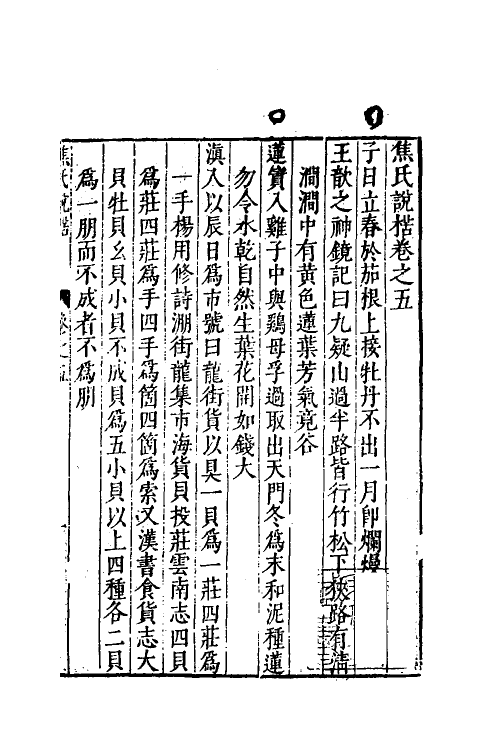 焦氏說楛卷之五
子日立春於茄根上接牡丹不出一月卽爛熳
王歆之神鏡記曰九疑山過半路皆行竹松下狹路有清
澗澗中有黃色蓮葉芳氣竟谷
蓮實入雞子中與鷄母孚過取出天門冬爲末和泥種蓮
勿令水乾自然生葉花開如錢大
滇人以辰日爲市號曰龍街貨以貝一貝爲一莊四莊爲
一手楊用修詩淜街龍集市海貨貝投莊雲南志四貝
爲莊四莊爲手四手爲箇四箇爲索又漢書食貨志大
貝牡貝幺貝小貝不成貝爲五小貝以上四種各二貝
爲一朋而不成者不爲朋
焦氏說楛 卷之五 一